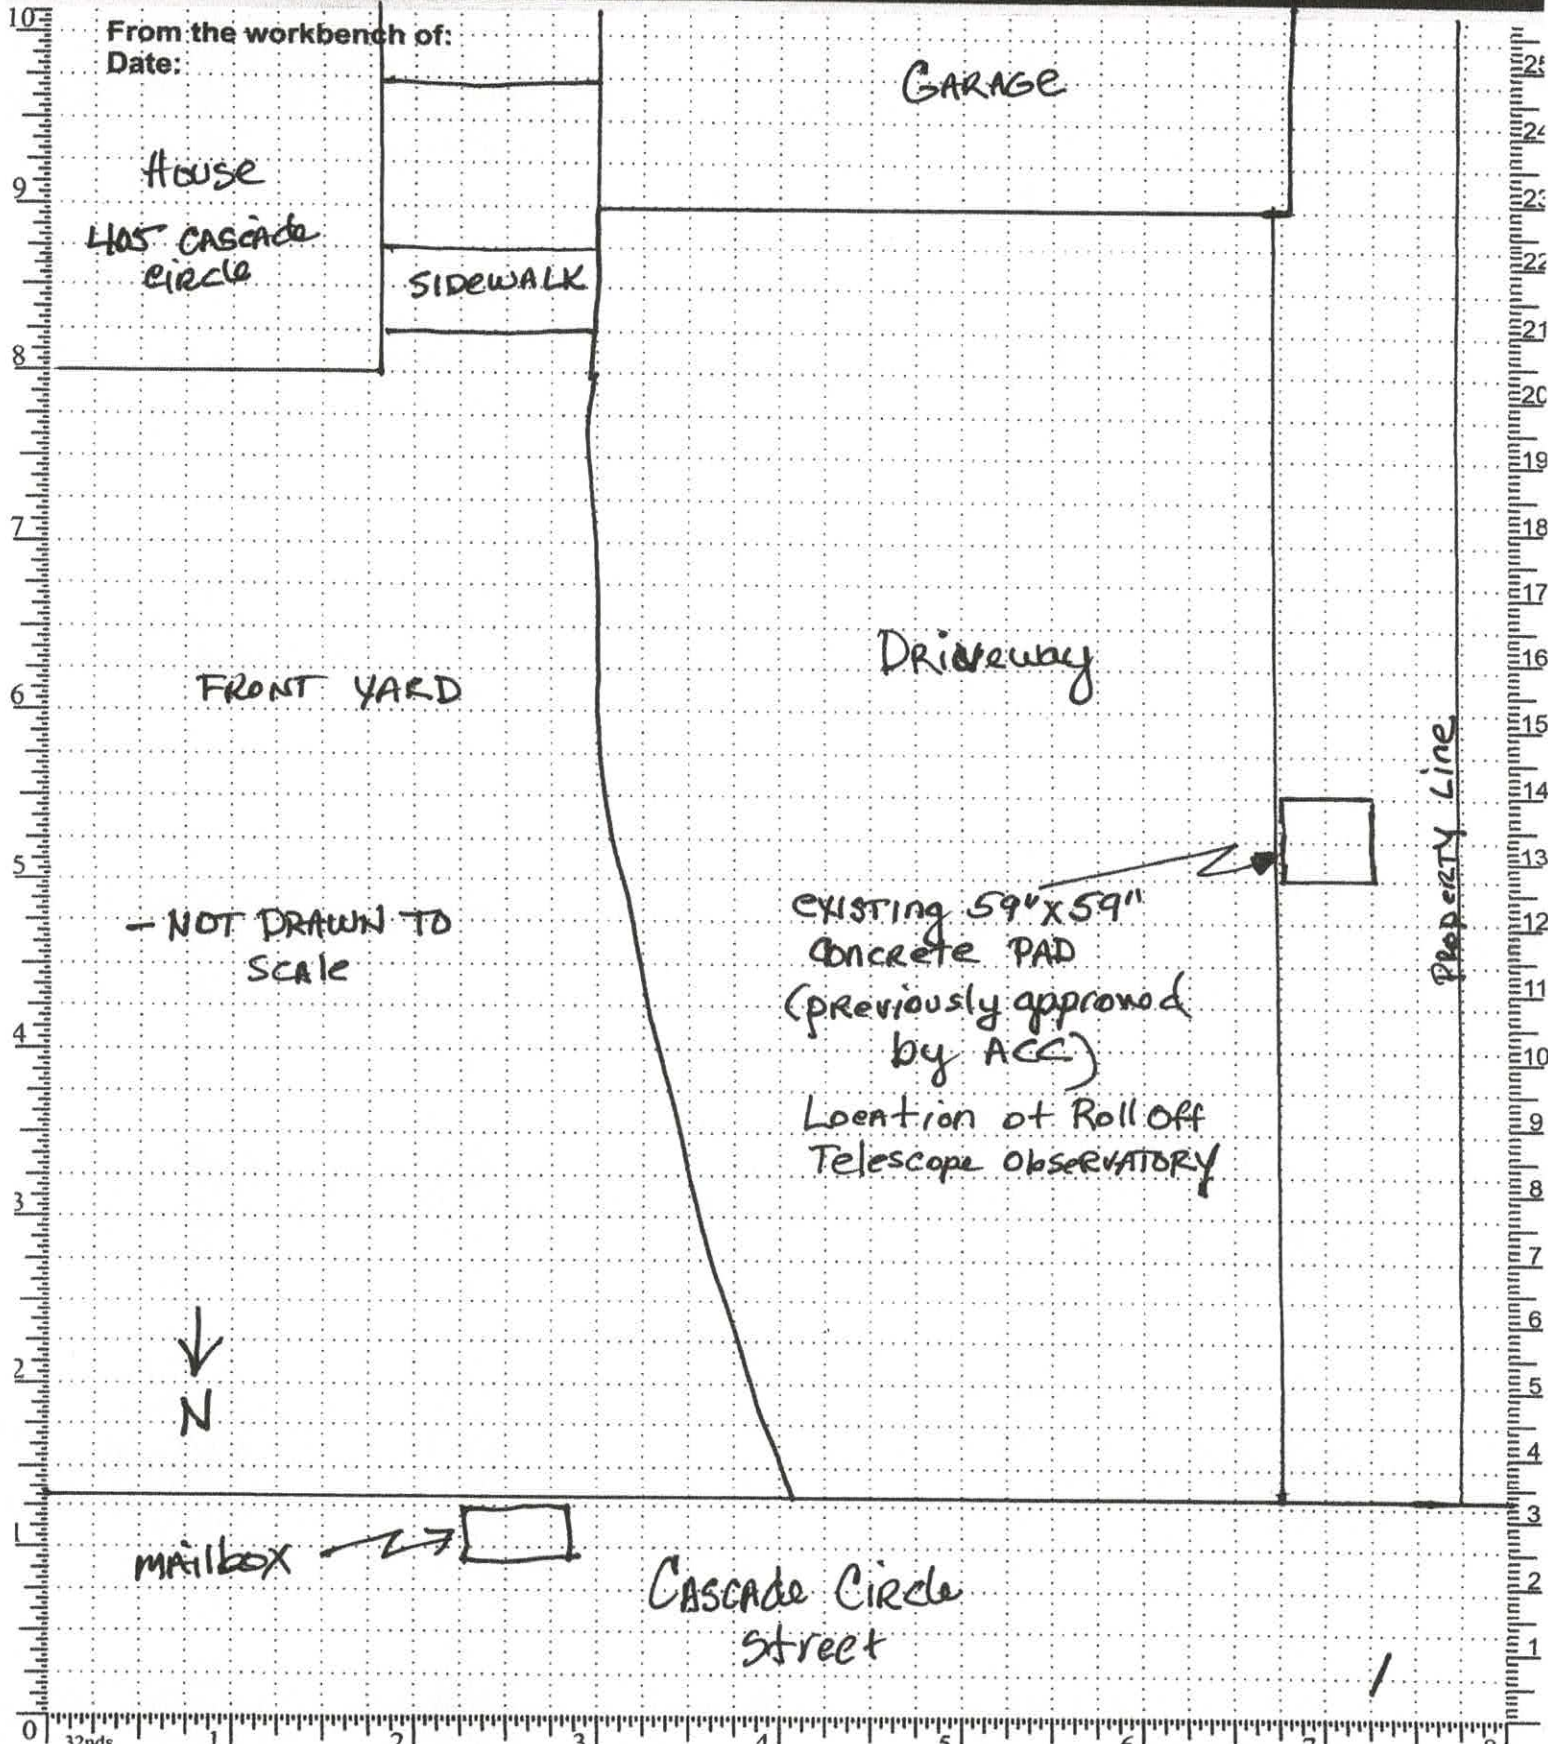 From the workbench of:
Date:
GARAGE
House
405 CASCADE
CIRCLE
SIDEWALK
Driveway
FRONT YARD
Property Line
- NOT DRAWN TO
SCALE
existing 59"x59"
Concrete PAD
(previously approved
by ACC)
Location of Roll Off
Telescope Observatory
N
mailbox
Cascade Circle
Street
10
9
8
7
6
5
4
3
2
1
0
32nds
1
2
3
4
5
6
7
25
24
23
22
21
20
19
18
17
16
15
14
13
12
11
10
9
8
7
6
5
4
3
2
1